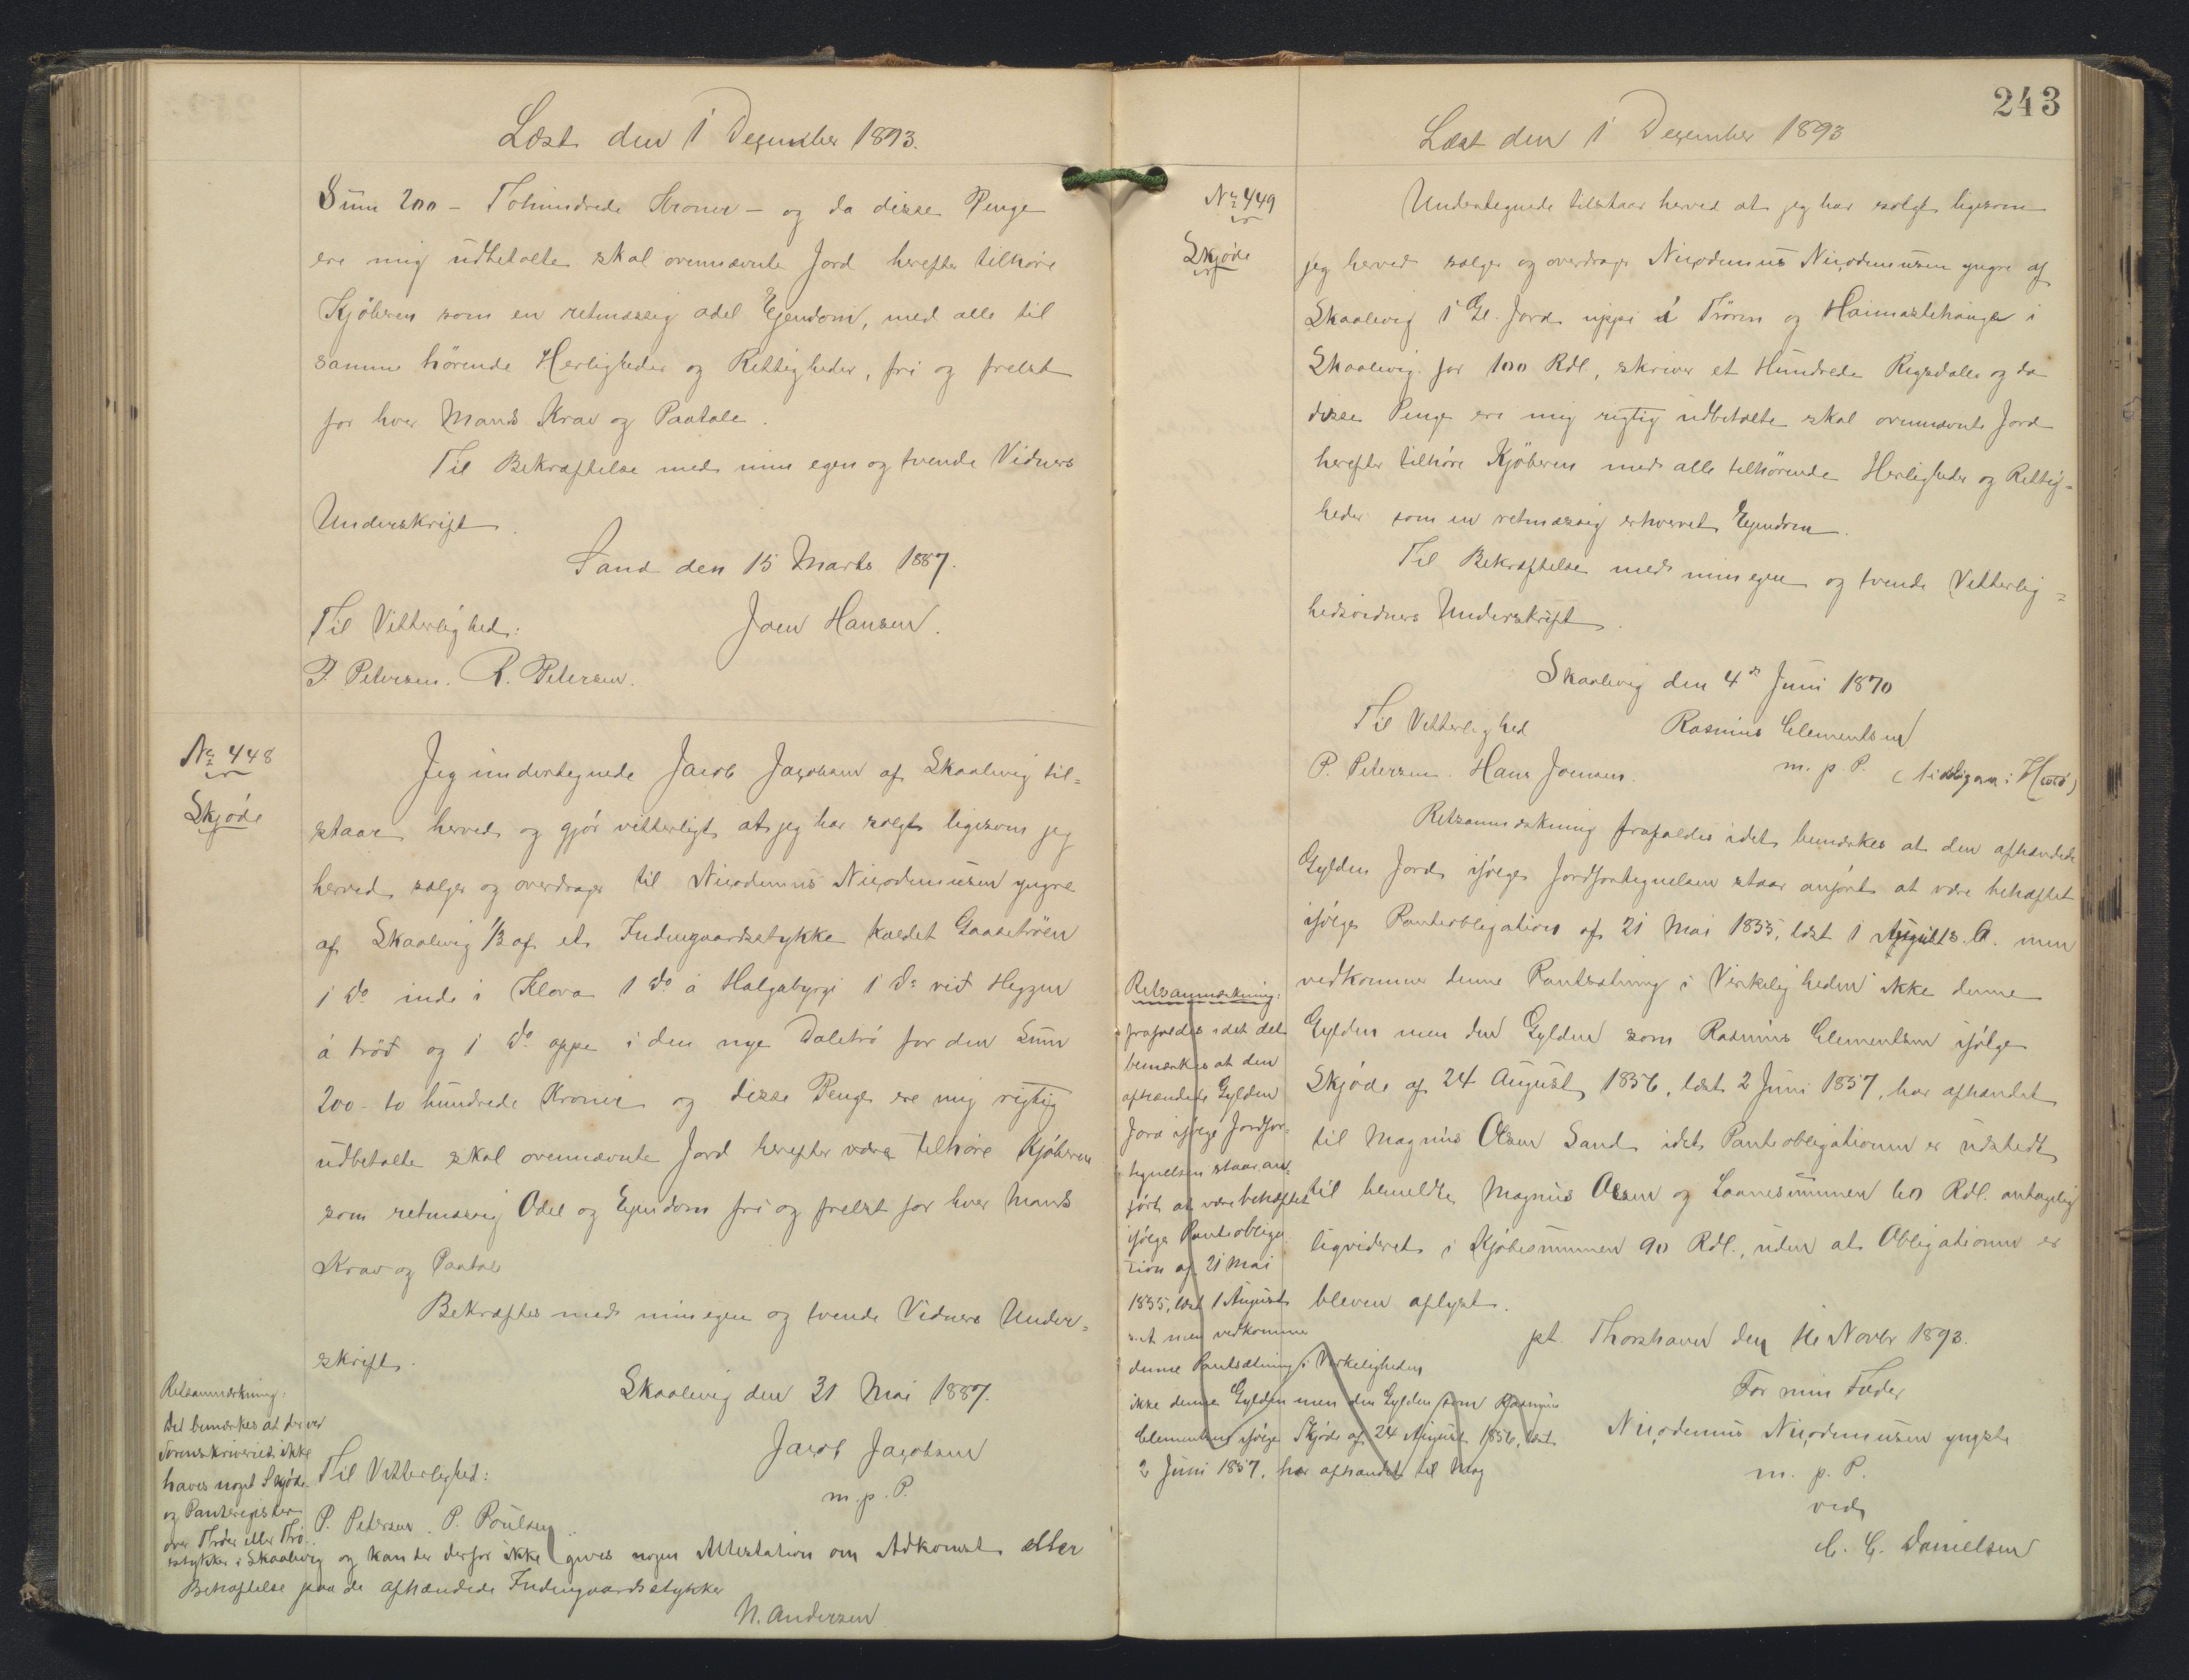 Læst den 1 December 1893.
Sum 200 - Tohundrede Kroner - og da disse Penge
ere mig udbetalte skal ovennævnte Jord herefter tilhøre
Kjøberen som en retmæssig odel Ejendom, med alle til
samme hörende Herligheder og Rettigheder, fri og frelst
for hver Mands Krav og Paatale.
Til Bekræftelse med min egen og tvende Vidners
Underskrift.
Sand den 15 Marts 1887.
Til Vitterlighed:
Joen Hansen.
P. Petersen. R. Petersen.
No 448
Skjøde
Jeg undertegnede Jacob Jacobsen af Skaalevig til=
staar herved og gjör vitterligt at jeg har solgt ligesom jeg
herved sælger og overdrager til Nicodemus Nicodemusen yngre
af Skaalevig 1/3 af et Indengaardsstykke kaldet Gaasetröen
1 do inde i Klova 1 do á Halgabyrgi 1 do við Heggun
á tröð og 1 do oppe i den nye Daletrö for den Sum
200 - to hundrede Kroner og disse Penge ere mig rigtig
udbetalte skal ovennævnte Jord herefter være tilhöre Kjöberen
som retmæssig Odel og Ejendom fri og frelst for hver Mands
Krav og Paatale
Bekræftes med min egen og tvende Vidners Under=
skrift.
Skaalevig den 31 Mai 1887.
Jacob Jacobsen
m. p. P.
Til Vitterlighed:
P. Petersen. P. Poulsen.
Retsanmærkning:
Det bemærkes at der ved
Sorenskriveriet ikke
haves noget Skjöde-
og Panteregister
over Tröer eller Trö-
stykker i Skaalevig og kan der derfor ikke gives nogen Attestation om Adkomst eller
Behæftelse paa de afhændede Indengaardsstykker
N. Andersen
243
Læst den 1 December 1893
No 449
Skjøde
Undertegnede tilstaar herved at jeg har solgt ligesom
jeg herved sælger og overdrager Nicodemus Nicodemusen yngre af
Skaalevig 1 Gl. Jord uppi á Trören og Haimastehauge i
Skaalevig for 100 Rdl., skriver et Hundrede Rigsdaler og da
disse Penge ere mig rigtig udbetalte skal ovennævnte Jord
herefter tilhöre Kjöberen med alle tilhörende Herligheder og Rettig=
heder som en retmæssig erhvervet Ejendom.
Til Bekræftelse med min egen og tvende Vitterlig=
hedsvidners Underskrift.
Skaalevig den 4de Juni 1870
Til Vitterlighed
Rasmus Clementsen
m. p. P.
P. Petersen. Hans Joensen.
Retsanmærkning frafaldes idet bemærkes at den afhændede
Gylden Jord ifölge Jordfortegnelsen staar anfört at være behæftet
ifölge Panteobligation af 21 Mai 1855, læst 1 August s. A. men
vedkommer denne Pantsætning i Virkeligheden ikke denne
Gylden men den Gylden som Rasmus Clementsen ifölge
Skjöde af 24 August 1856, læst 2 Juni 1857, har afhændet
til Magnus Olsen Sand idet Panteobligationen er udstedt
til bemeldte Magnus Olsen og Laanesummen 60 Rdl. antagelig
liqvideret i Kjöbesummen 90 Rdl., uden at Obligationen er
bleven aflyst.
pt. Thorshavn den 16 Novbr 1893.
For min Fader
Nicodemus Nicodemusen yngste
m. p. P.
ved
C. C. Danielsen
Retsanmærkning:
frafaldes idet det
bemærkes at den
afhændede Gylden
Jord ifölge Jordfor=
tegnelsen staar an=
fört at være behæftet
ifölge Panteobliga
tion af 21 Mai
1855, læst 1 August
s. A men vedkommer
denne Pantsætning i Virkeligheden
ikke denne Gylden men den Gylden som Rasmus
Clementsen ifölge Skjöde af 24 August 1856, læst
2 Juni 1857, har afhændet til Mag